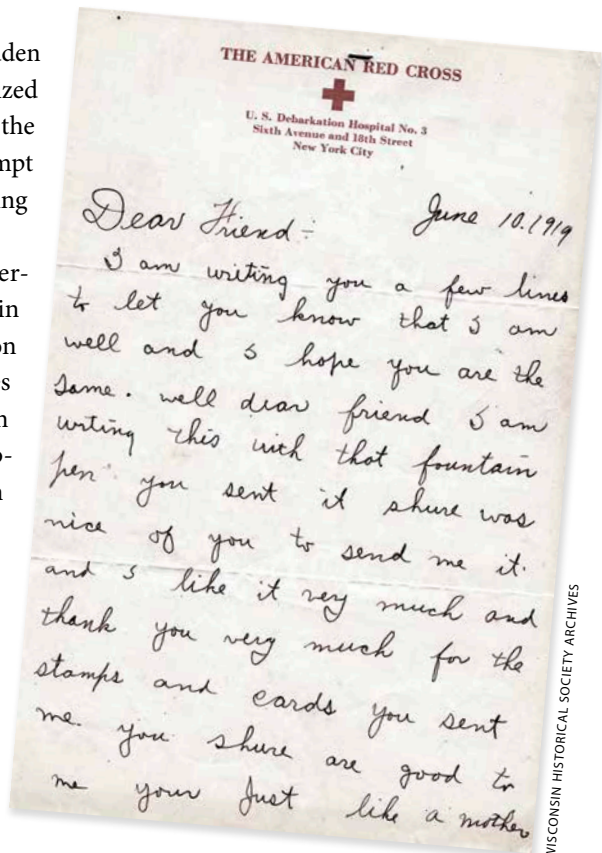 den
zed
the
mpt
ng
er-
in
on
es
n
o-
n
THE AMERICAN RED CROSS
U. S. Debarkation Hospital No. 3
Sixth Avenue and 18th Street
New York City
June 10. 1919
Dear Friend -
I am writing you a few lines
to let you know that I am
well and I hope you are the
same. well dear friend I am
writing this with that fountain
pen you sent it shure was
nice of you to send me it.
and I like it very much and
thank you very much for the
stamps and cards you sent
me. you shure are good to
me your Just like a mother
WISCONSIN HISTORICAL SOCIETY ARCHIVES